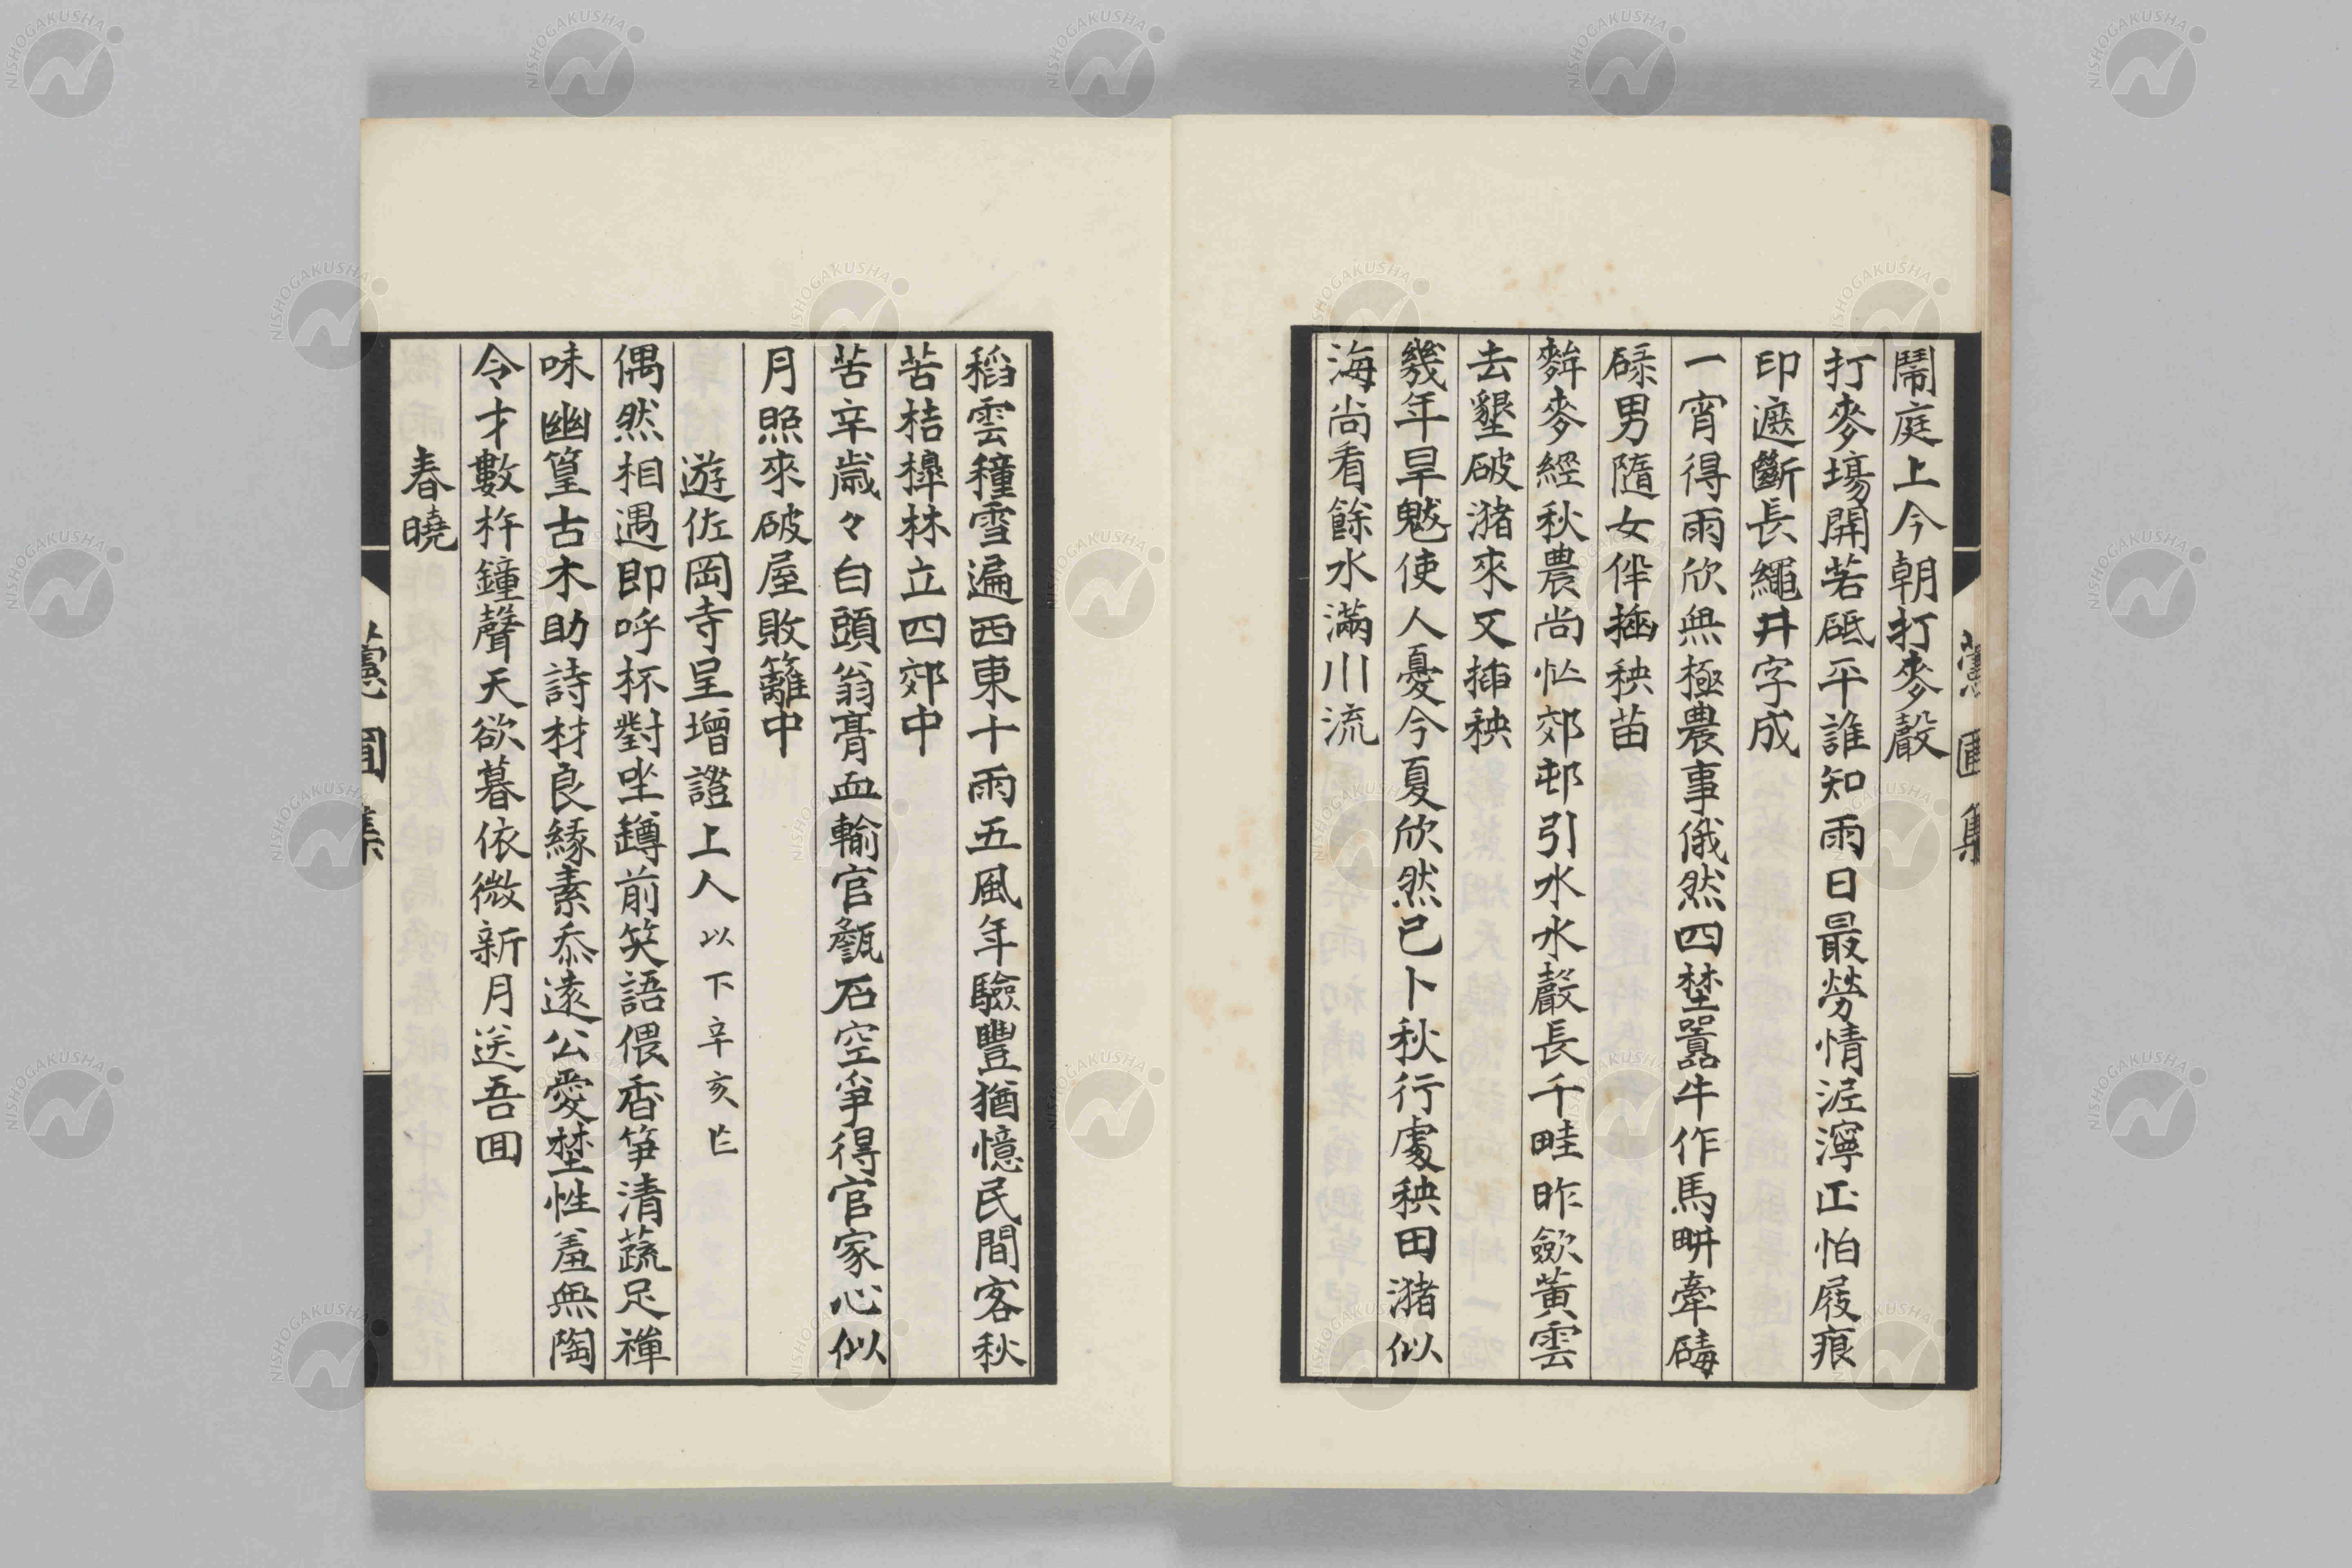 鬧庭上今朝打麥聲
打麥場開若砥平誰知雨日最勞情泥濘正怕屐痕
印遮斷長繩井字成
一宵得雨欣無極農事俄然四埜囂牛作馬畊牽碡
碌男隨女伴插秧苗
麰麥經秋農尚忙郊邨引水水聲長千畦昨斂黃雲
去墾破瀦來又插秧
幾年旱魃使人憂今夏欣然已卜秋行處秧田瀦似
海尚看餘水滿川流
稻雲穜雪遍西東十雨五風年驗豐猶憶民間客秋
苦桔槹林立四郊中
苦辛歲々白頭翁膏血輸官甔石空爭得官家心似
月照來破屋敗籬中
遊佐岡寺呈增證上人以下辛亥亡
偶然相遇即呼杯對坐罇前笑語偎香筍清蔬足禪
味幽篁古木助詩材良緣素忝遠公愛埜性羞無陶
令才數杵鐘聲天欲暮依微新月送吾囬
春曉